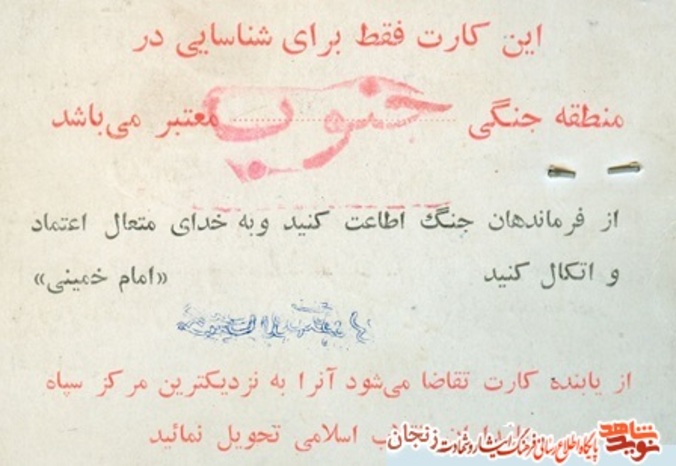 این کارت فقط برای شناسایی در
منطقه جنگی جنوب معتبر می‌باشد
از فرماندهان جنگ اطاعت کنید وبه خدای متعال اعتماد
و اتکال کنید «امام خمینی»
از یابنده کارت تقاضا می‌شود آنرا به نزدیکترین مرکز سپاه
اسلامی تحویل نمائید
نوید شاهد
پایگاه اطلاع رسانی فرهنگ ایثار و شهادت زنجان